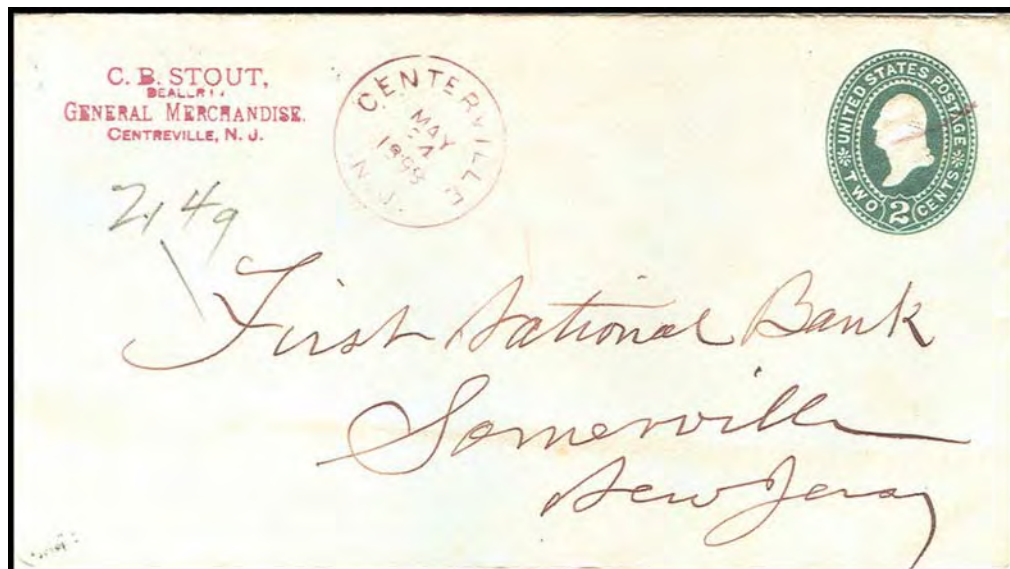 C. B. STOUT,
GENERAL MERCHANDISE.
CENTREVILLE, N. J.
CENTERVILLE
MAY
N. J.
UNITED STATES POSTAGE
TWO 2 CENTS
21 49
First National Bank
Somerville
New Jersey